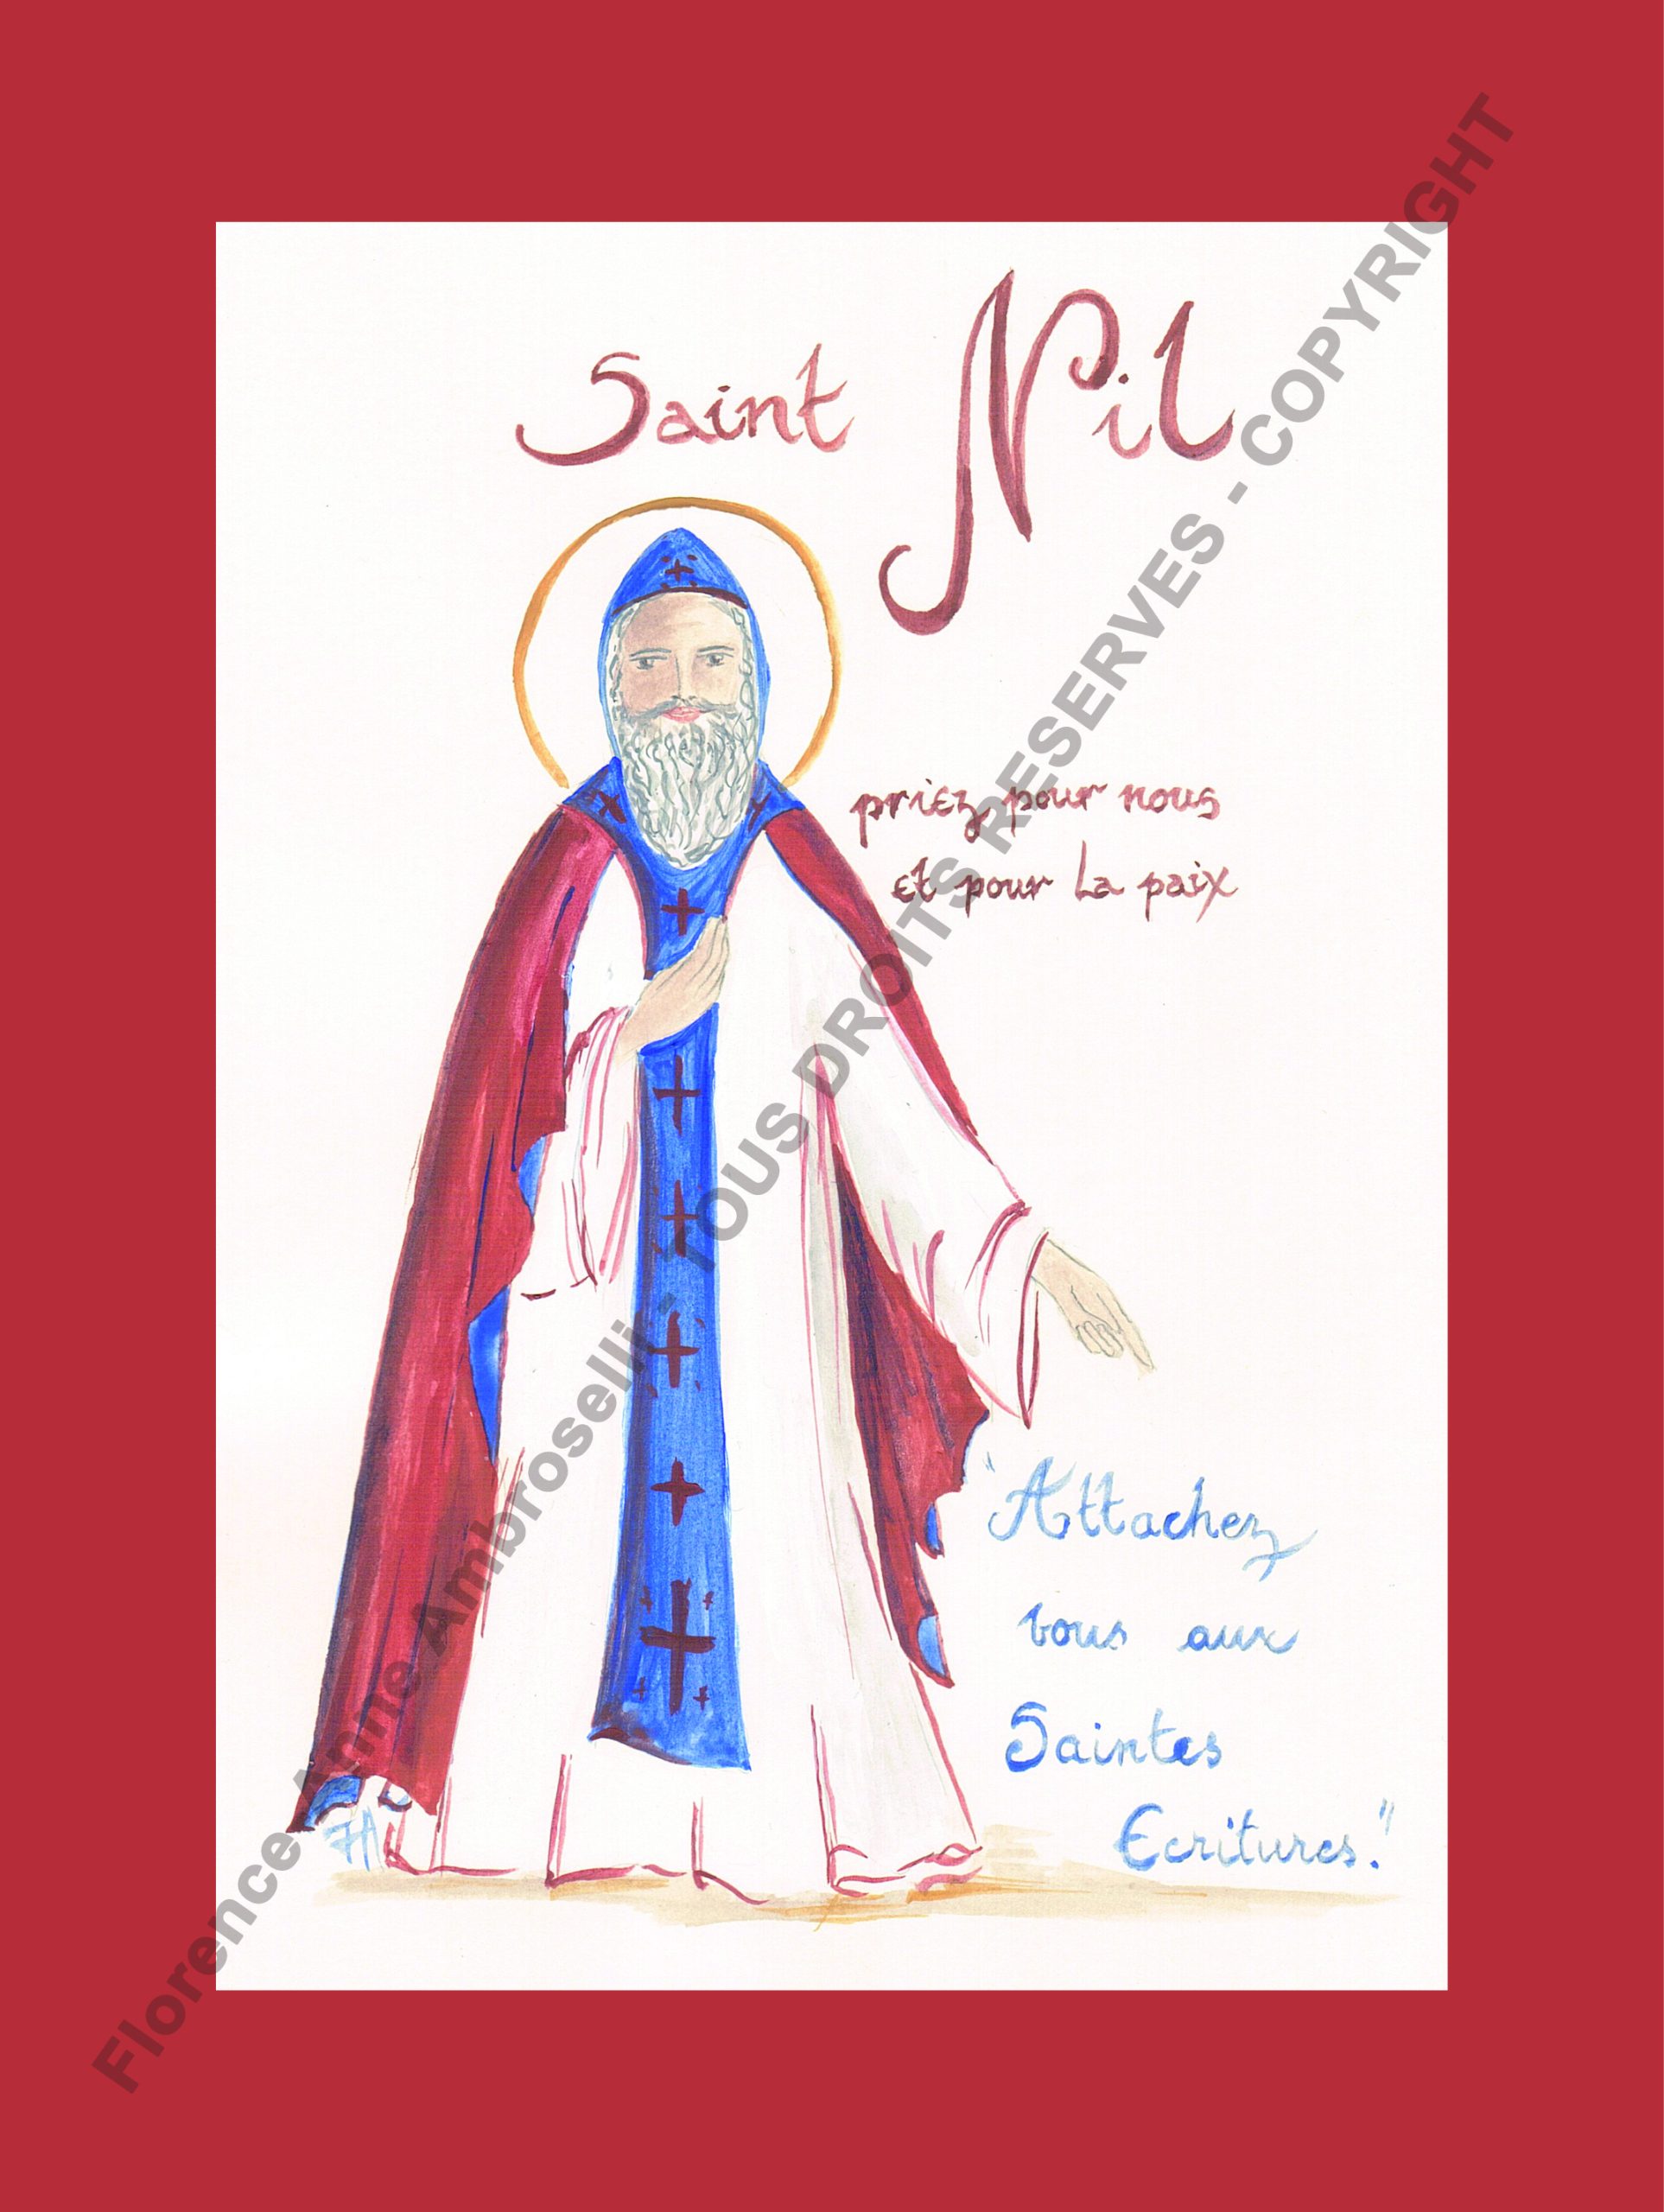 Saint Nil
priez pour nous
et pour la paix
"Attachez
vous aux
Saintes
Ecritures."
FA
Florence Anne Ambroselli - TOUS DROITS RESERVES - COPYRIGHT